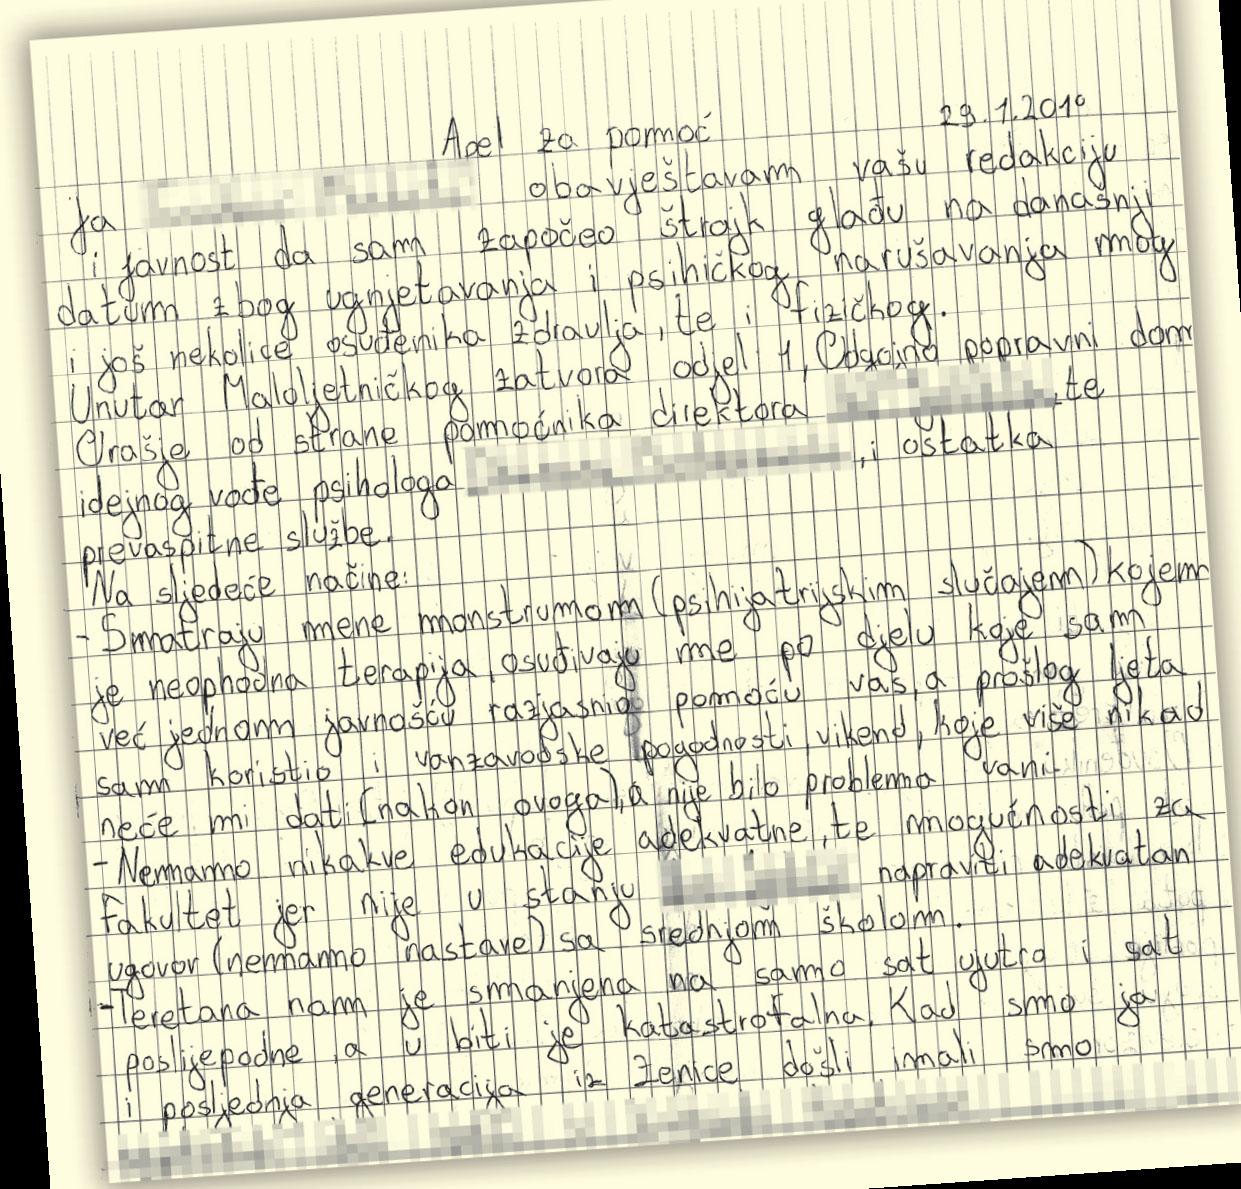 Apel za pomoć 29.1.201
Ja obavještavam vašu redakciju
i javnost da sam započeo štrajk glađu na današnji
datum zbog ugnjetavanja i psihičkog narušavanja mog
i još nekolice osuđenika zdravlja, te i fizičkog.
Unutar Maloljetničkog zatvora odjel 1, popravni dom
Orašje od strane pomoćnika direktora , te
idejnog vođe psihologa , i ostatka
prevaspitne službe.
Na sljedeće načine:
- Smatraju mene monstrumom (psihijatrijskim slučajem) kojem
je neophodna terapija, osuđivaju me po djelu koje sam
već jednom javnošću razjasnio pomoću vas, a prošlog ljeta
sam koristio i vanzavodske pogodnosti, vikend, koje više nikad
neće mi dati (nakon ovoga), a nije bilo problema vani.
- Nemamo nikakve edukacije adekvatne, te mogućnosti za
fakultet jer nije u stanju napraviti adekvatan
ugovor (nemamo nastave) sa srednjom školom.
- Teretana nam je smanjena na samo sat ujutro i sat
poslijepodne, a u biti je katastrofalna. Kad smo ja
i posljednja generacija iz Zenice došli imali smo